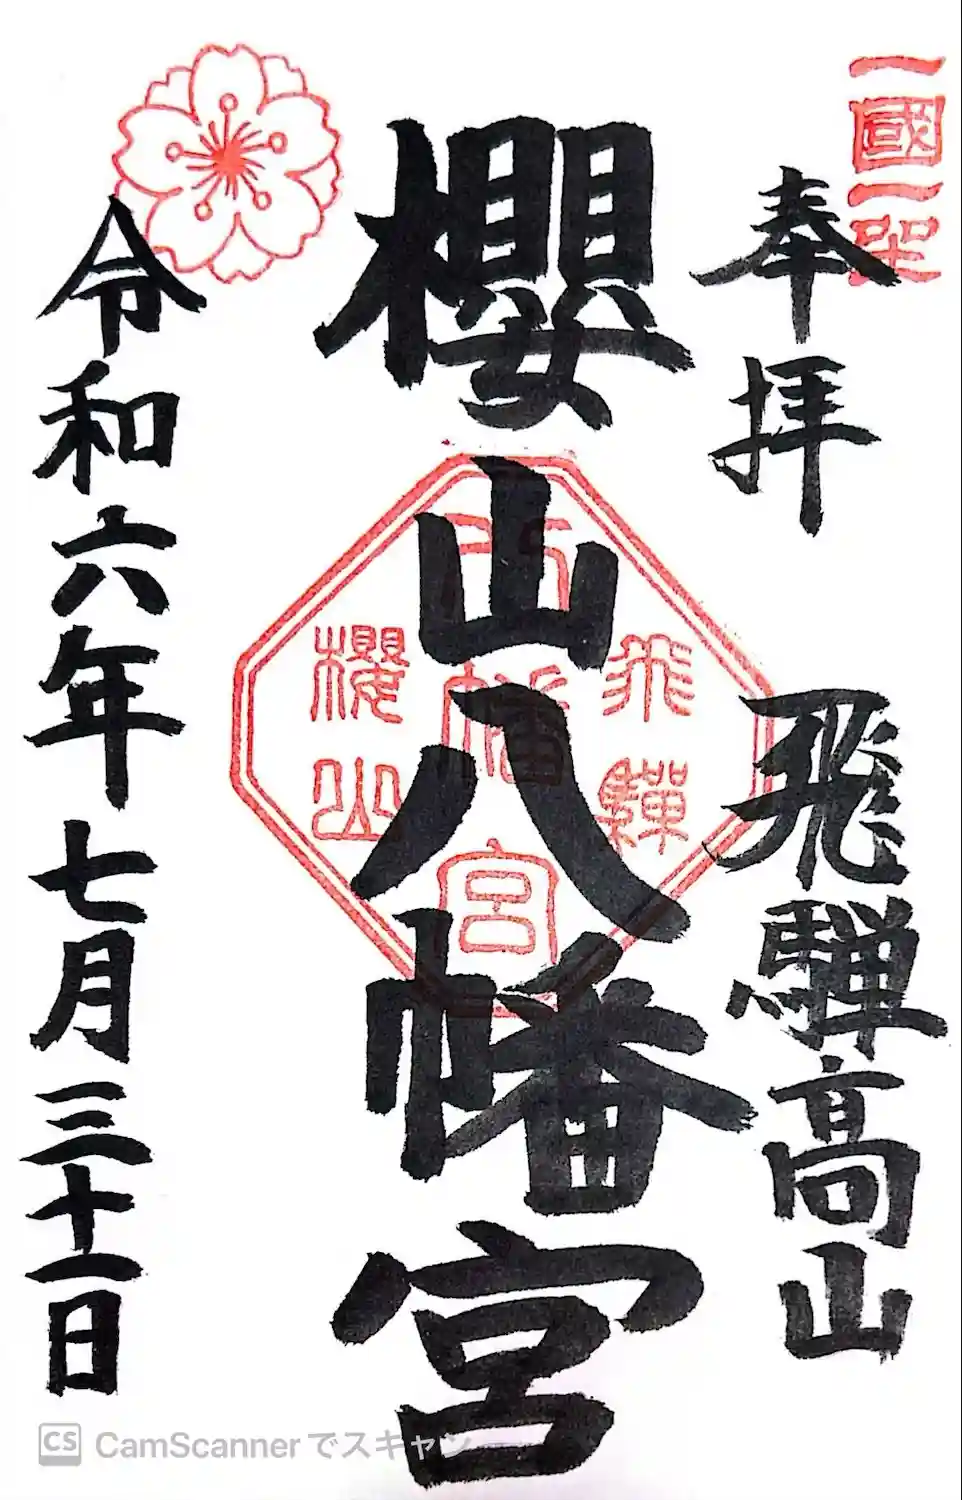 一國一社
奉拝
飛騨高山
櫻山八幡宮
飛驒
八幡宮
櫻山
令和六年七月三十一日
CS CamScannerでスキャン